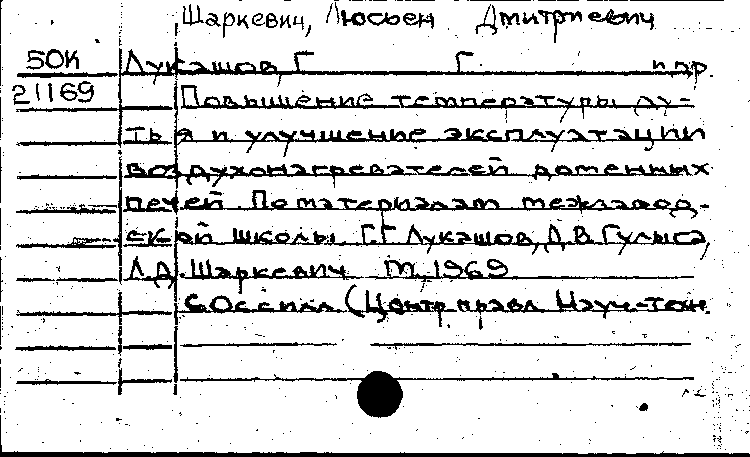 Шаркевич, Люсьен Дмитриевич
50К Лукашов, Г Г и др.
21169 Повышение температуры ду-
тья и улучшение эксплуатации
воздухонагревателей доменных
печей. По материалам межзавод-
ской школы. Г.Г. Лукашов, Д.В. Гулыга,
Л.Д. Шаркевич М, 1969
с. Оссилл. (Центр правл Науч-техн.